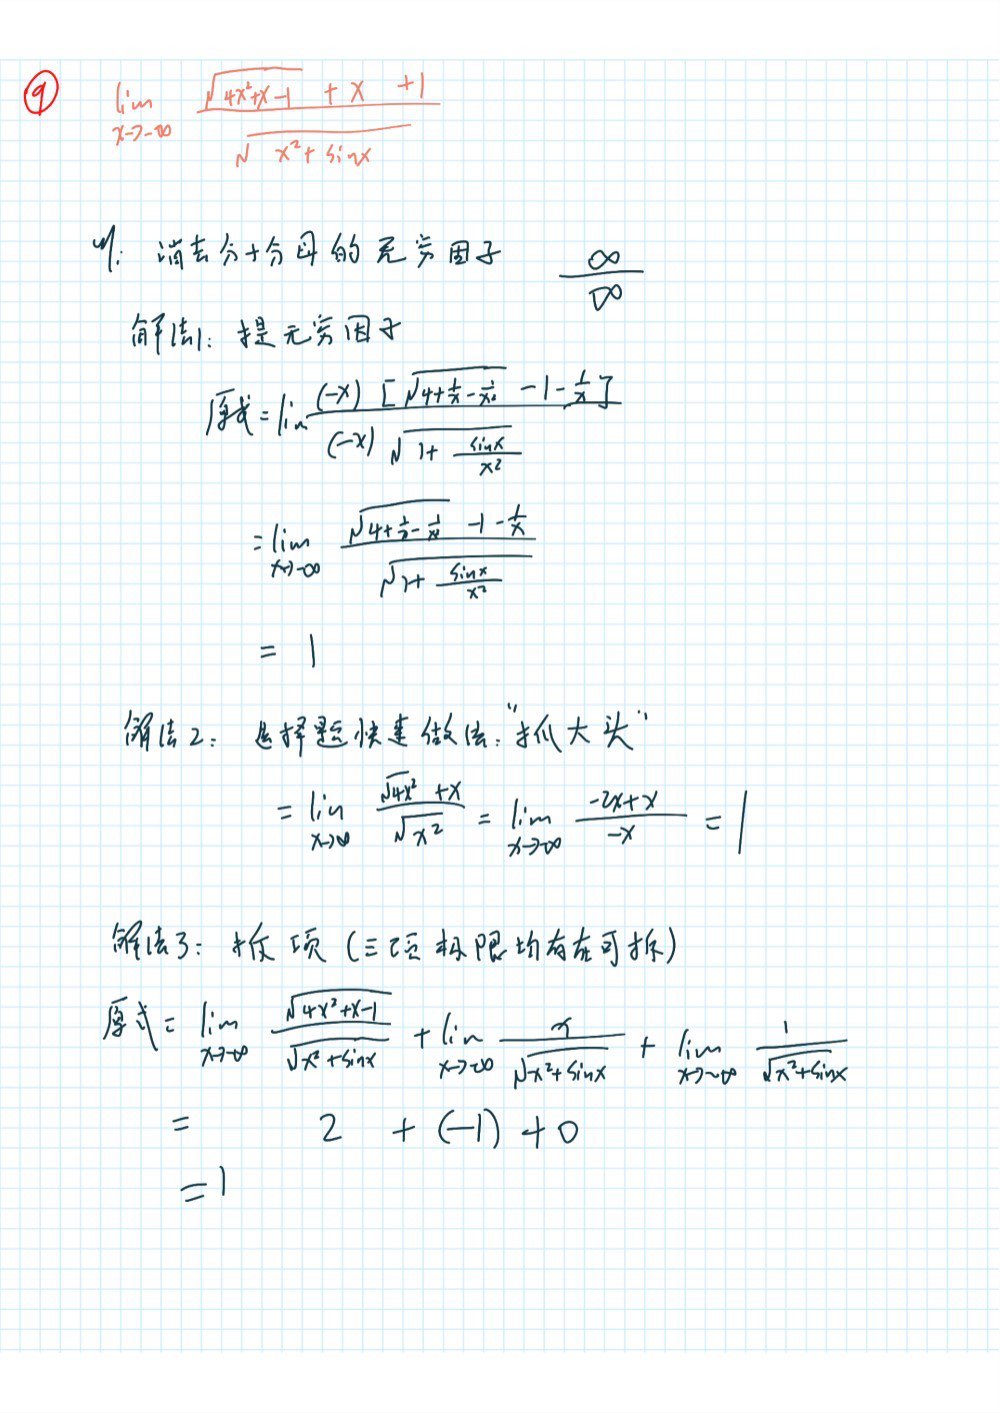 ⑨ lim x→-∞ (√(4x²+x-1) + x + 1) / √(x²+sinx)
消去分子分母的无穷因子 ∞/∞
解法1: 提无穷因子
原式 = lim (-x) [√(4+1/x-1/x²) -1-1/x] / (-x)√(1+sinx/x²)
= lim x→-∞ (√(4+1/x-1/x²) -1-1/x) / √(1+sinx/x²)
= 1
解法2: 选择题快速做法: "抓大头"
= lim x→-∞ (√4x² + x) / √x² = lim x→-∞ (-2x+x) / -x = 1
解法3: 拆项 (三项极限均存在可拆)
原式 = lim x→-∞ √(4x²+x-1) / √(x²+sinx) + lim x→-∞ x / √(x²+sinx) + lim x→-∞ 1 / √(x²+sinx)
= 2 + (-1) + 0
= 1